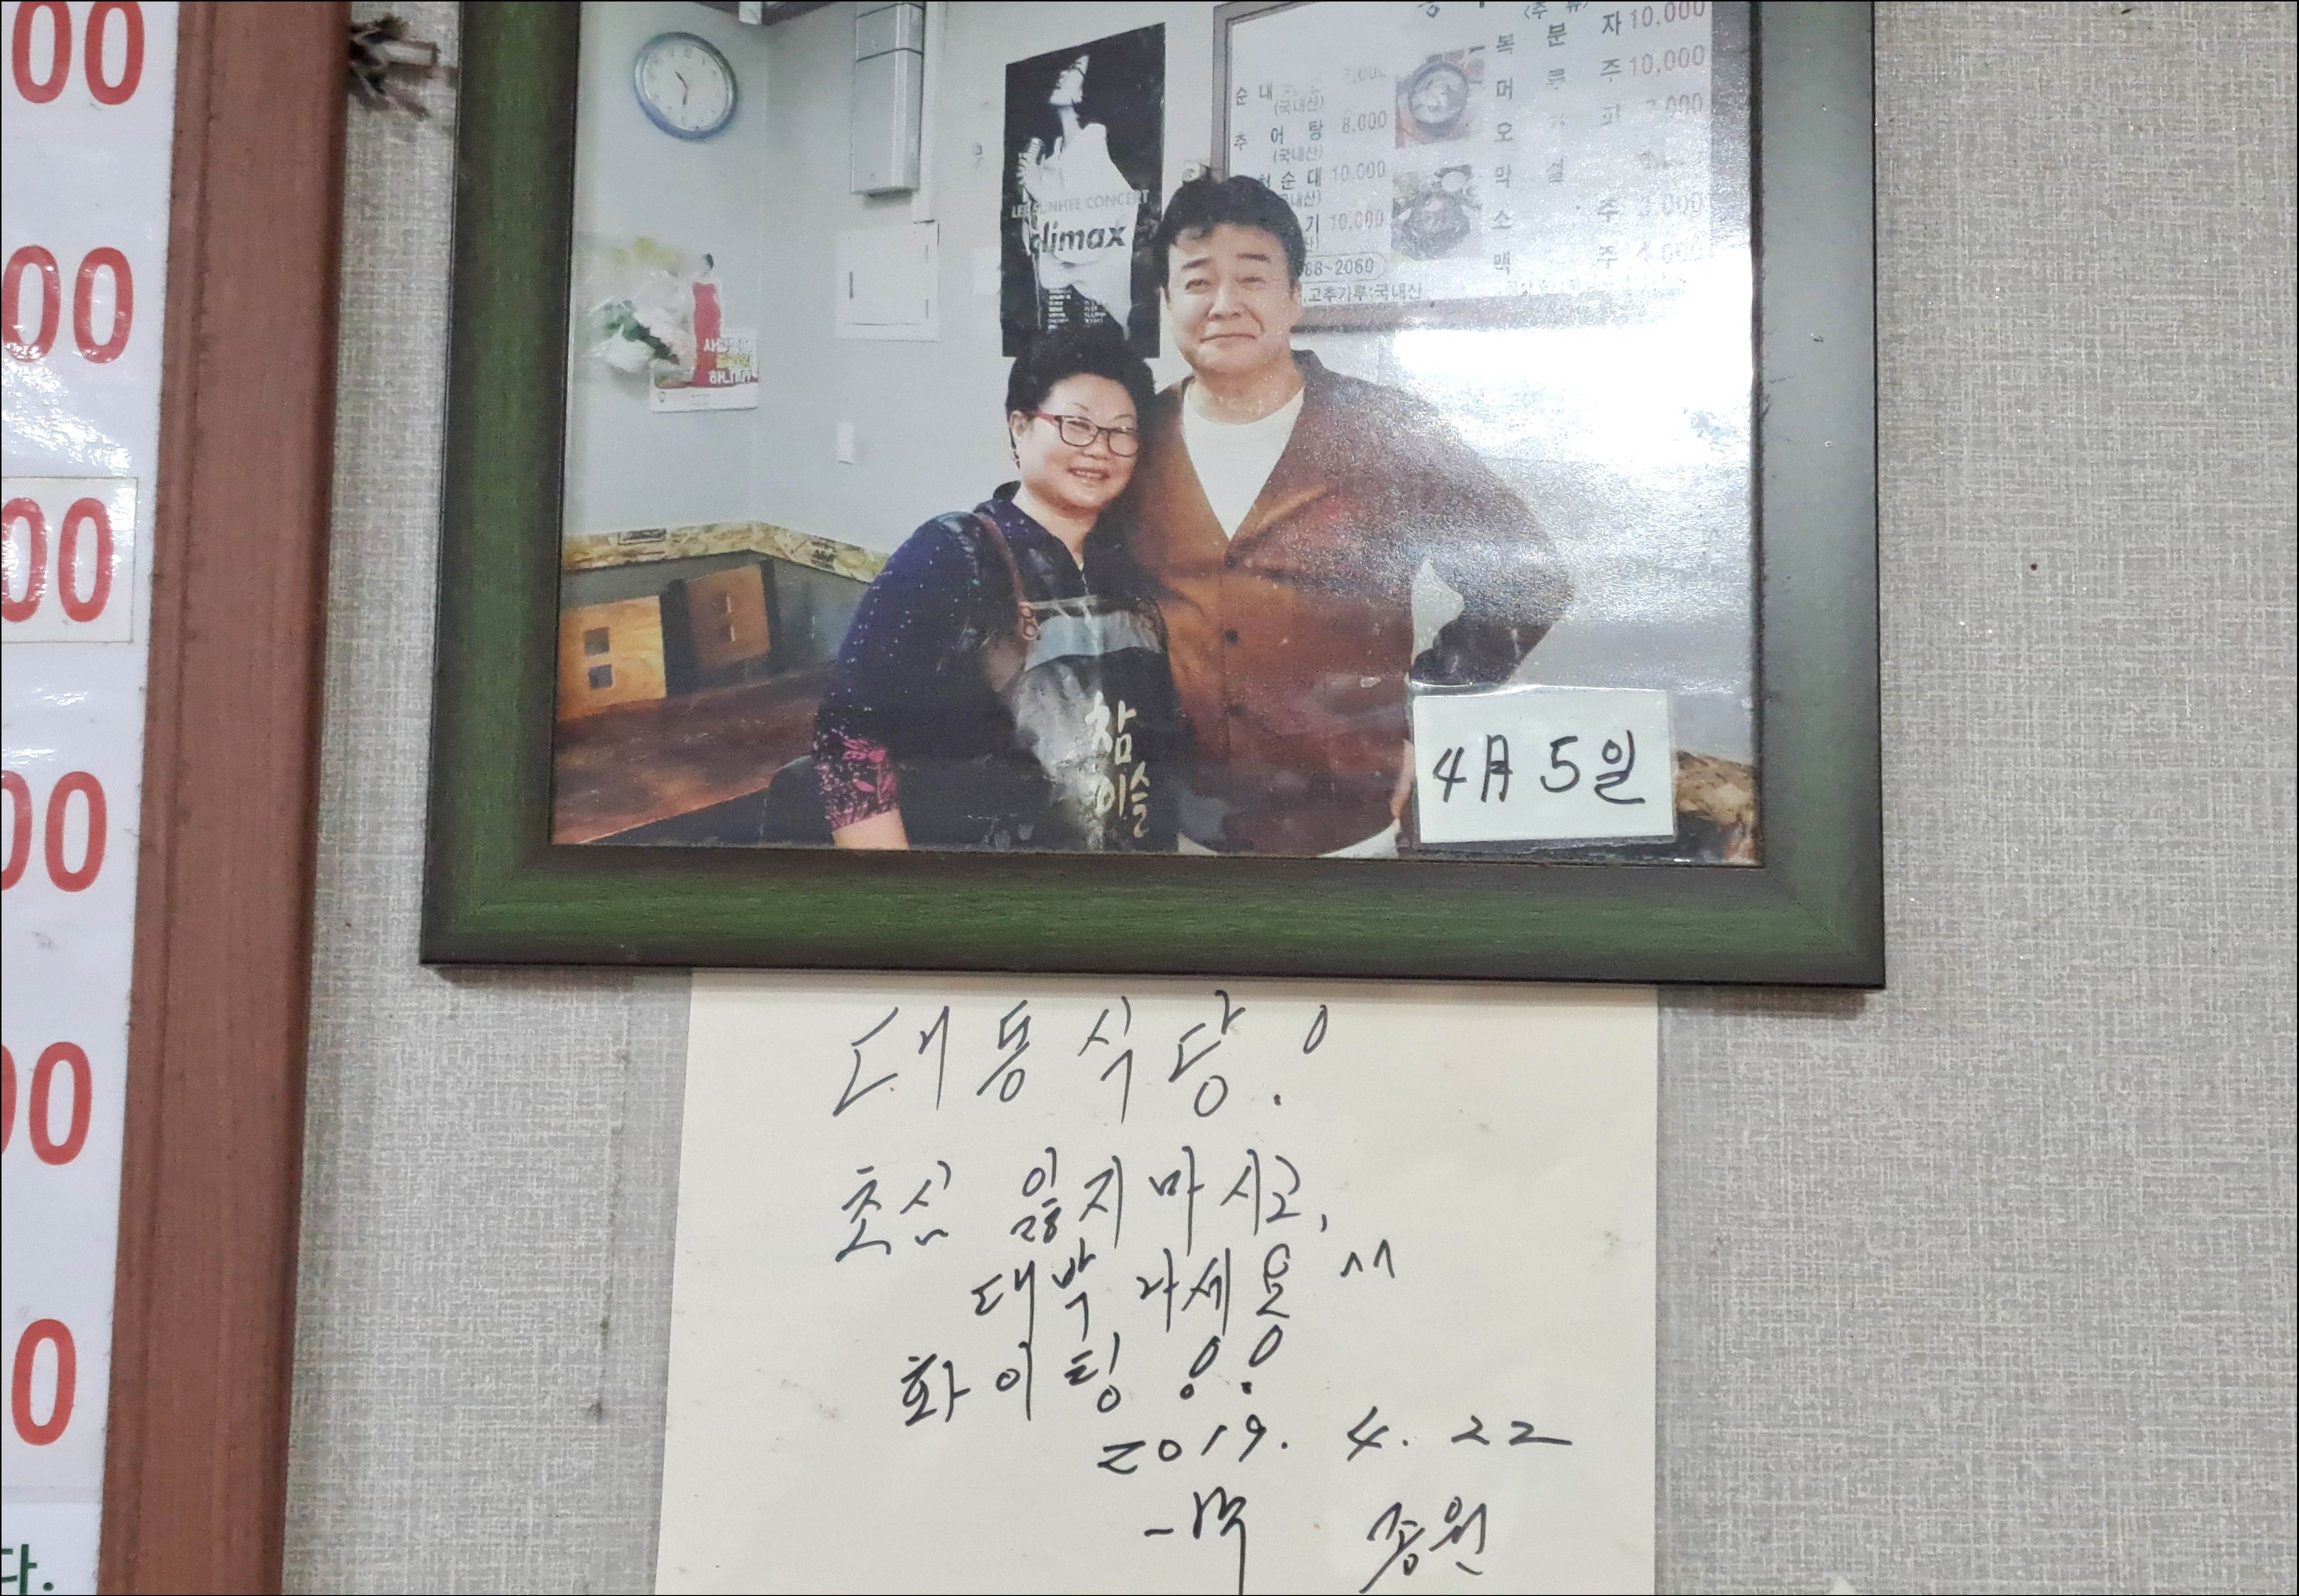 00
00
00
00
00
0
다.
LEE SUNHEE CONCERT
climax
8,000
추 어 탕
(국내산)
순 대 10,000
기 10,000
68~2060
고추가루:국내산
복 분 자 10,000
머 루 주 10,000
참
이슬
4月 5일
대동식당!
초심 잃지마시고,
대박 나세요 ^^
화이팅!!
2019. 4. 22
-백 종원